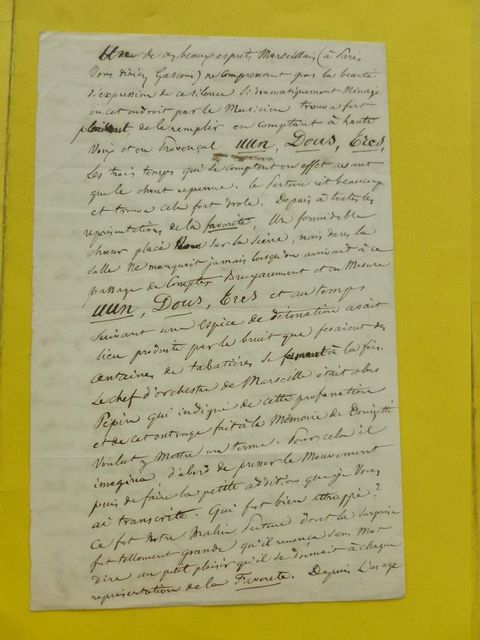 Un de ces beaux esprits Marseillais (à Paris
Vous diriez Gascons) ne comprenant pas la beauté
d'expression de ce silence si dramatiquement Ménagé
en cet endroit par le Musicien trouva fort
plaisant de le remplir en comptant à haute
Voix et en provençal uun, Dous, Tres,
les trois temps qui se comptent en effet avant
que le chant reprenne. le Parterre rit beaucoup
et trouva cela fort drole. Depuis à toutes les
représentations de la favorite, Un formidable
chœur placé non sur la Scène, mais dans la
Salle ne manquait jamais lorsqu'on arrivait à ce
passage de Compter Bruyamment et en Mesure
uun, Dous, Tres et au temps
Suivant une espèce de détonation avait
lieu produite par le bruit que fesaient des
centaines de tabatières se fermant à la fois.
Le chef d'orchestre de Marseille était alors
Pépin qui indigné de cette profanation
et de cet outrage fait à le Mémoire de Donizetti
Voulut y Mettre un terme. Pour cela il
imagina d'abord de presser le Mouvement
puis de faire la petite addition que je Vous
ai transcrite. Qui fut bien attrappé ?
Ce fut Notre Malin Parterre dont la Surprise
fut tellement grande qu'il renonca sans Mot
dire au petit plaisir qu'il se donnait à chaque
représentation de la Favorite. Depuis L'usage